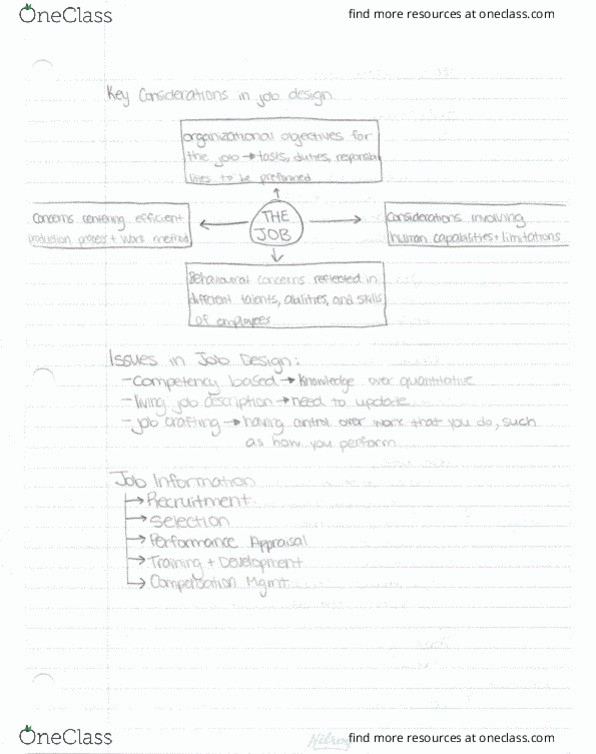 OneClass
find more resources at oneclass.com
Key Considerations in job design
organizational objectives for
the job → tasks, duties, responsibi
lities to be preformed
Concerns centering efficient
production process + work method
THE
JOB
Considerations involving
human capabilities + limitations
Behavioural concerns reflected in
different talents, abilities, and skills
of employees
Issues in Job Design:
- Competency based → Knowledge over quantitative
- living job description → need to update
- job crafting → having control over work that you do, such
as how you perform
Job Information
→ Recruitment
→ Selection
→ Performance Appraisal
→ Training + Development
→ Compensation Mgmt
OneClass
Hilroy
find more resources at oneclass.com